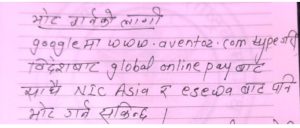 भोट गर्नको लागी
googleमा www.aventoz.com typeगरि
विदेशबाट global online pay बाट
साथै NIC Asia र esewa बाट पनि
भोट गर्न सकिन्छ ।